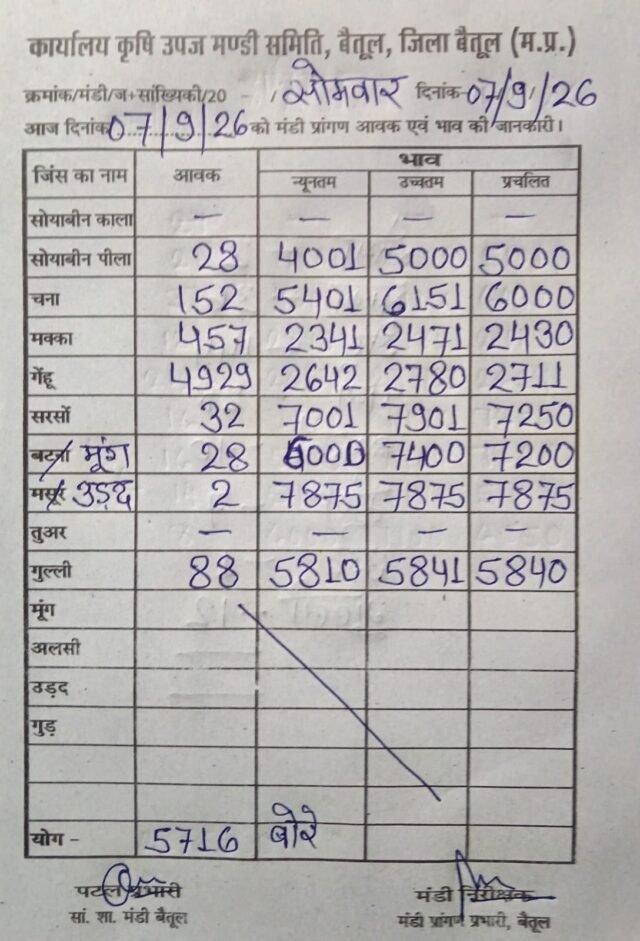 कार्यालय कृषि उपज मण्डी समिति, बैतूल, जिला बैतूल (म.प्र.)
क्रमांक/मंडी/ज+सांख्यिकी/20 - / सोमवार दिनांक 07/9/26
आज दिनांक 07/9/26 को मंडी प्रांगण आवक एवं भाव की जानकारी।
जिंस का नाम आवक भाव
न्यूनतम उच्चतम प्रचलित
सोयाबीन काला — — — —
सोयाबीन पीला 28 4001 5000 5000
चना 152 5401 6151 6000
मक्का 457 2341 2471 2430
गेंहू 4929 2642 2780 2711
सरसों 32 7001 7901 7250
बटना मूंग 28 6000 7400 7200
मसूर उड़द 2 7875 7875 7875
तुअर — — — —
गुल्ली 88 5810 5841 5840
मूंग
अलसी
उड़द
गुड़
योग - 5716 बोरे
पटल प्रभारी मंडी निरीक्षक
सां. शा. मंडी बैतूल मंडी प्रांगण प्रभारी, बैतूल